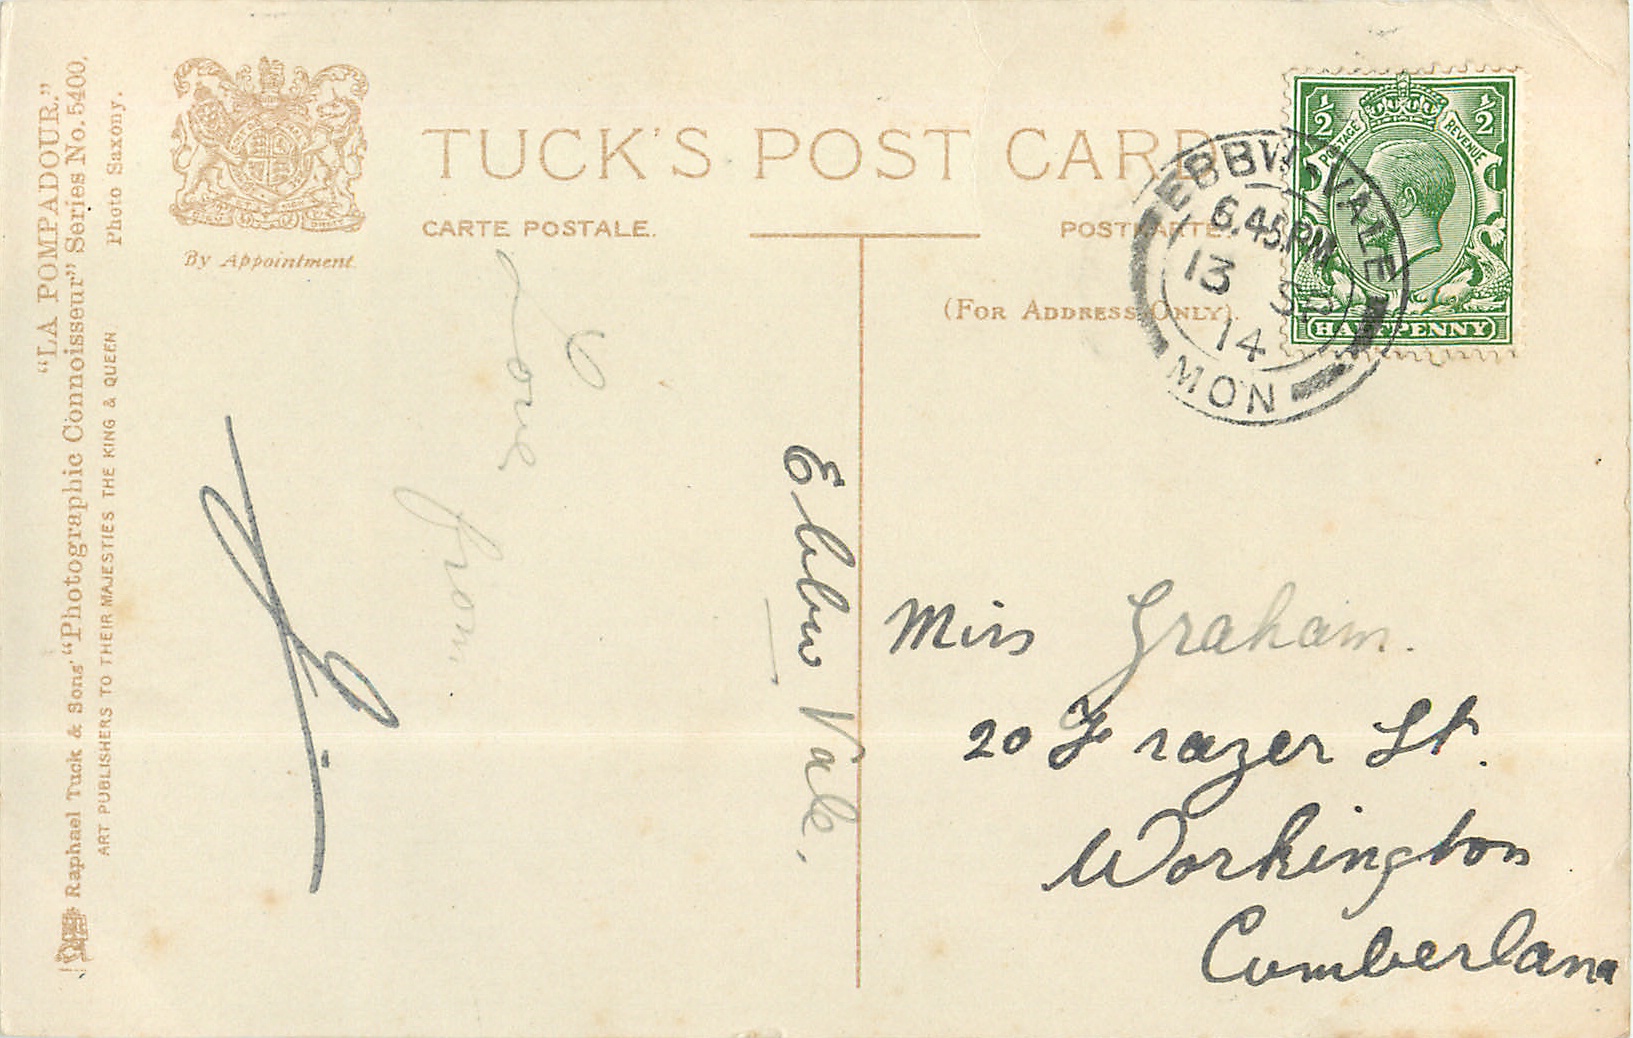 "LA POMPADOUR."
Raphael Tuck & Sons' "Photographic Connoisseur" Series No. 5400.
ART PUBLISHERS TO THEIR MAJESTIES THE KING & QUEEN
Photo Saxony.
By Appointment.
TUCK'S POST CARD
CARTE POSTALE.
POSTKARTE.
(FOR ADDRESS ONLY).
½ ½
POSTAGE REVENUE
HALFPENNY
EBBW-VALE
6.45PM
13 SP
14
MON
Love
from
Ebbw Vale,
Miss Graham.
20 Frazer St.
Workington
Cumberland